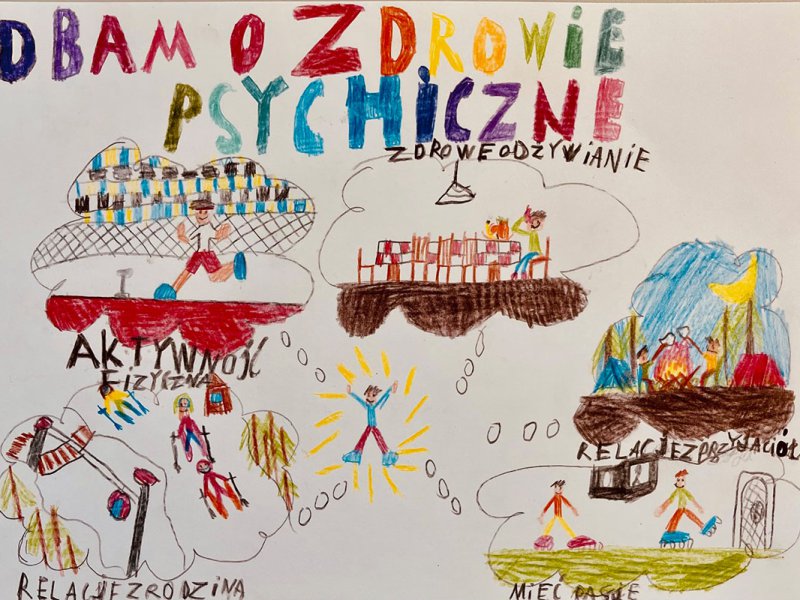 DBAM O ZDROWIE
PSYCHICZNE
ZDROWE ODŻYWIANIE
AKTYWNOŚĆ
FIZYCZNA
RELACJE Z PRZYJACIÓŁ
RELACJE Z RODZINA
MIEĆ PASJE
1